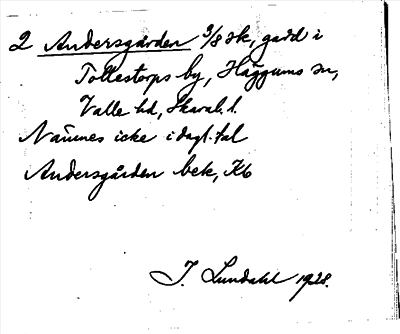 2 Andersgården 3/8 sk, gård i
Tollestorps by, Häggums sn,
Valle hd, Skarab. l.
Nämnes icke i dagl. tal
Andersgården bek, Kb
J. Lundahl 1928.